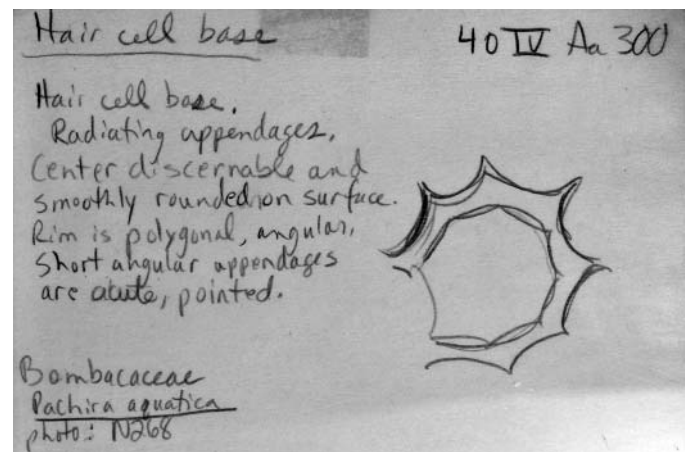 Hair cell base
40 IV Aa 300
Hair cell base.
Radiating appendages.
Center discernable and
smoothly rounded on surface.
Rim is polygonal, angular,
short angular appendages
are acute, pointed.
Bombacaceae
Pachira aquatica
photo: N268